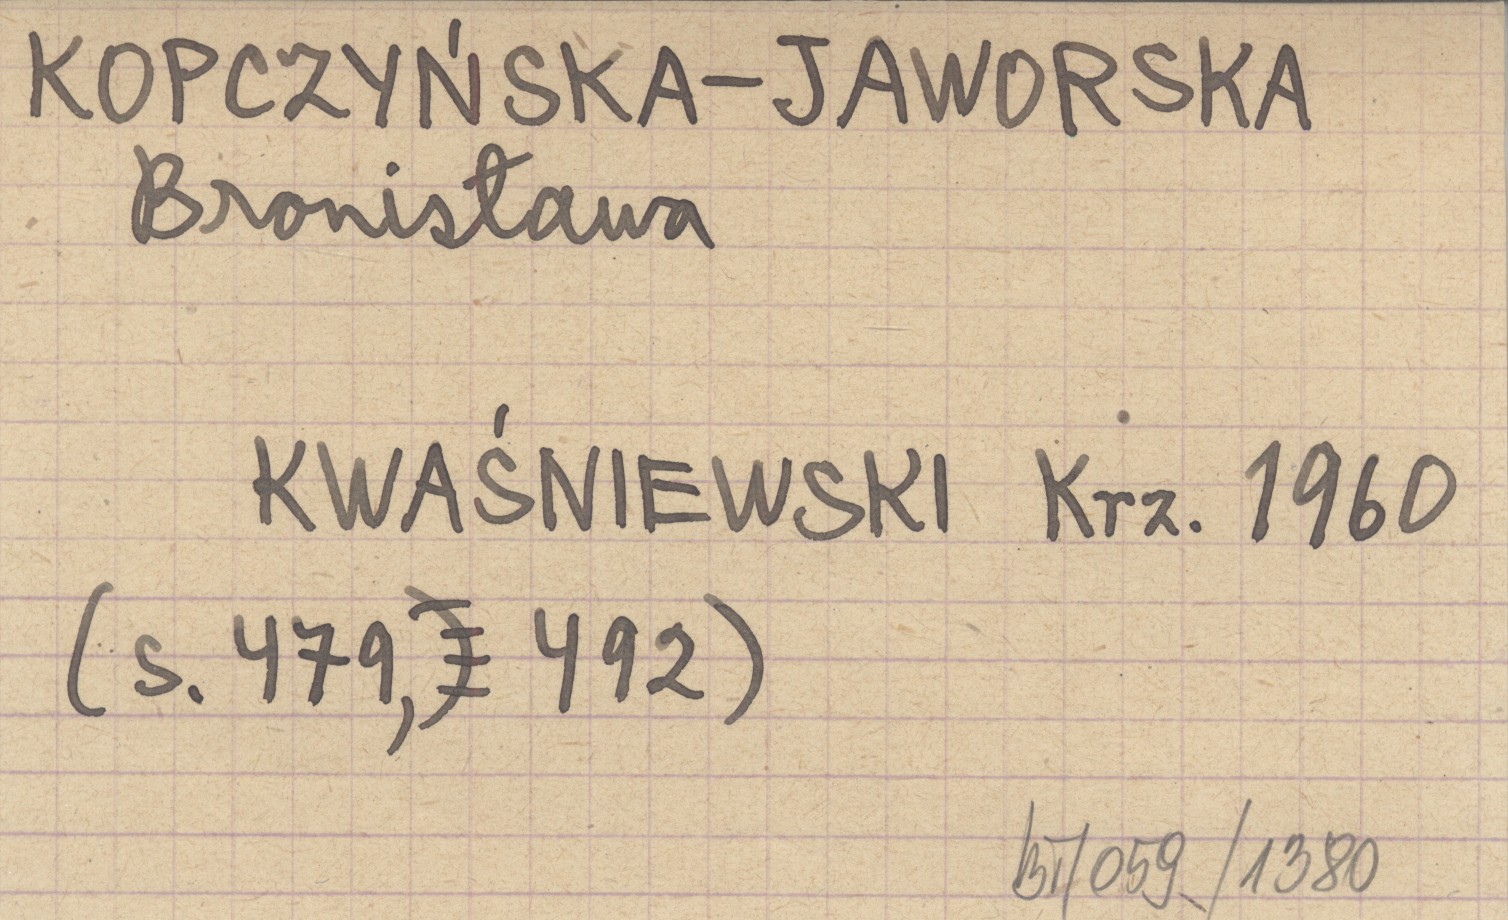 KOPCZYŃSKA-JAWORSKA
Bronisława
KWAŚNIEWSKI Krz. 1960
(s. 479, 492)
BI/059/1380